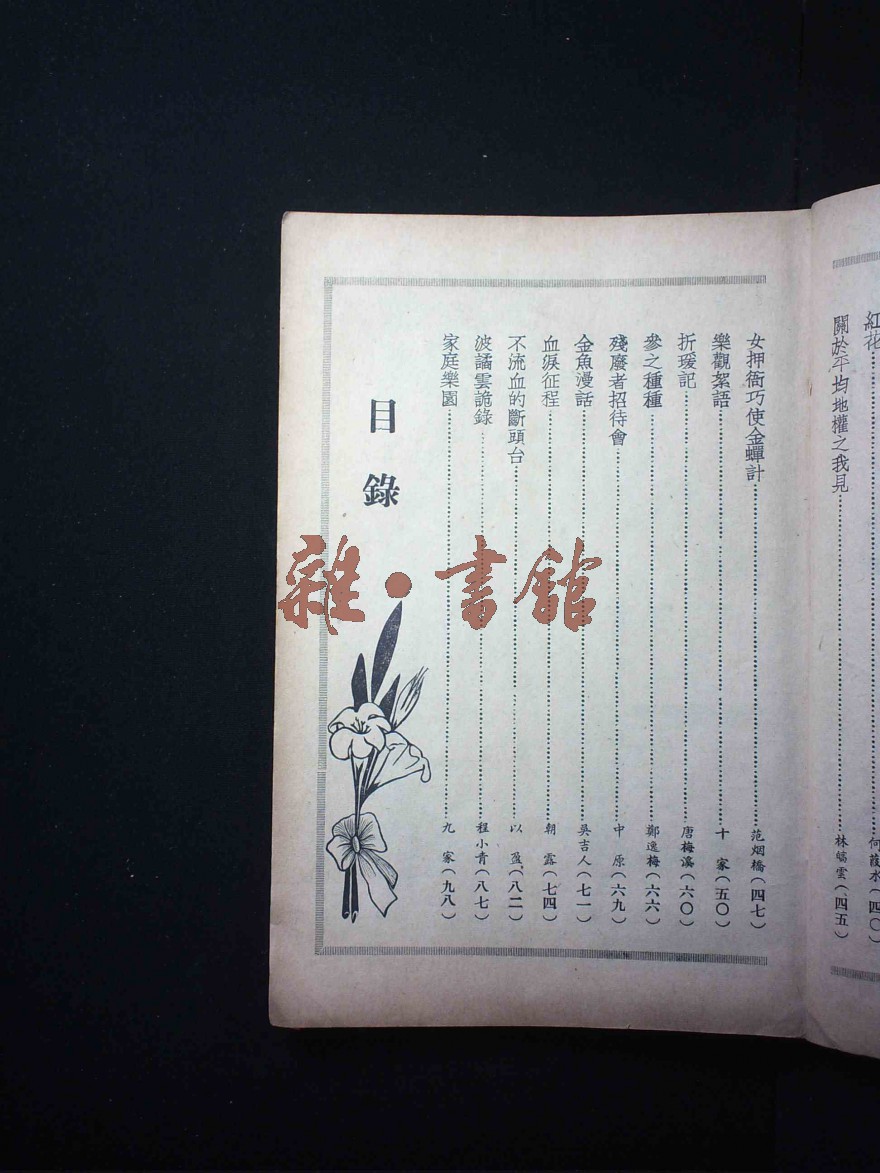 紅花……何葭水（四〇）
關於平均地權之我見……林皜雲（四五）
女押衙巧使金蟬計……范烟橋（四七）
樂觀絮語……十家（五〇）
折瑗記……唐梅溪（六〇）
參之種種……鄭逸梅（六六）
殘廢者招待會……中原（六九）
金魚漫話……吳吉人（七一）
血淚征程……朝露（七四）
不流血的斷頭台……以盈（八二）
波譎雲詭錄……程小青（八七）
家庭樂園……九家（九八）
目錄
雜·書館